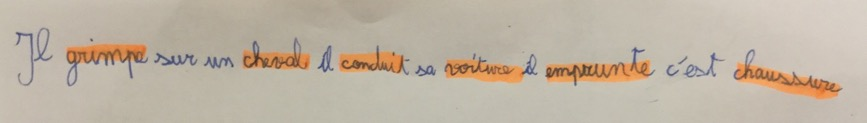 Il grimpe sur un cheval il conduit sa voiture il emprunte c'est chaussure